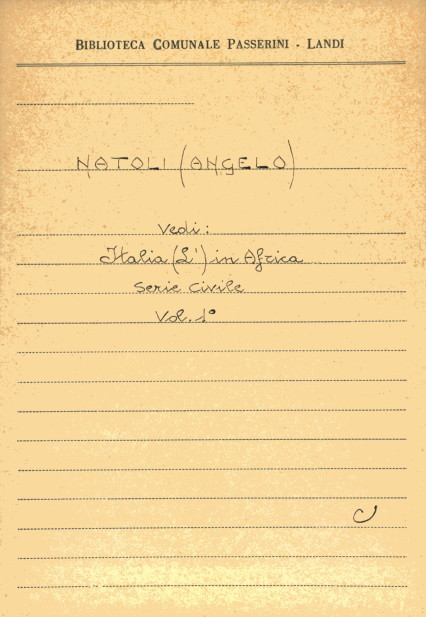 BIBLIOTECA COMUNALE PASSERINI - LANDI
NATOLI (ANGELO)
Vedi:
Italia (L') in Africa
Serie Civile
Vol. 1°